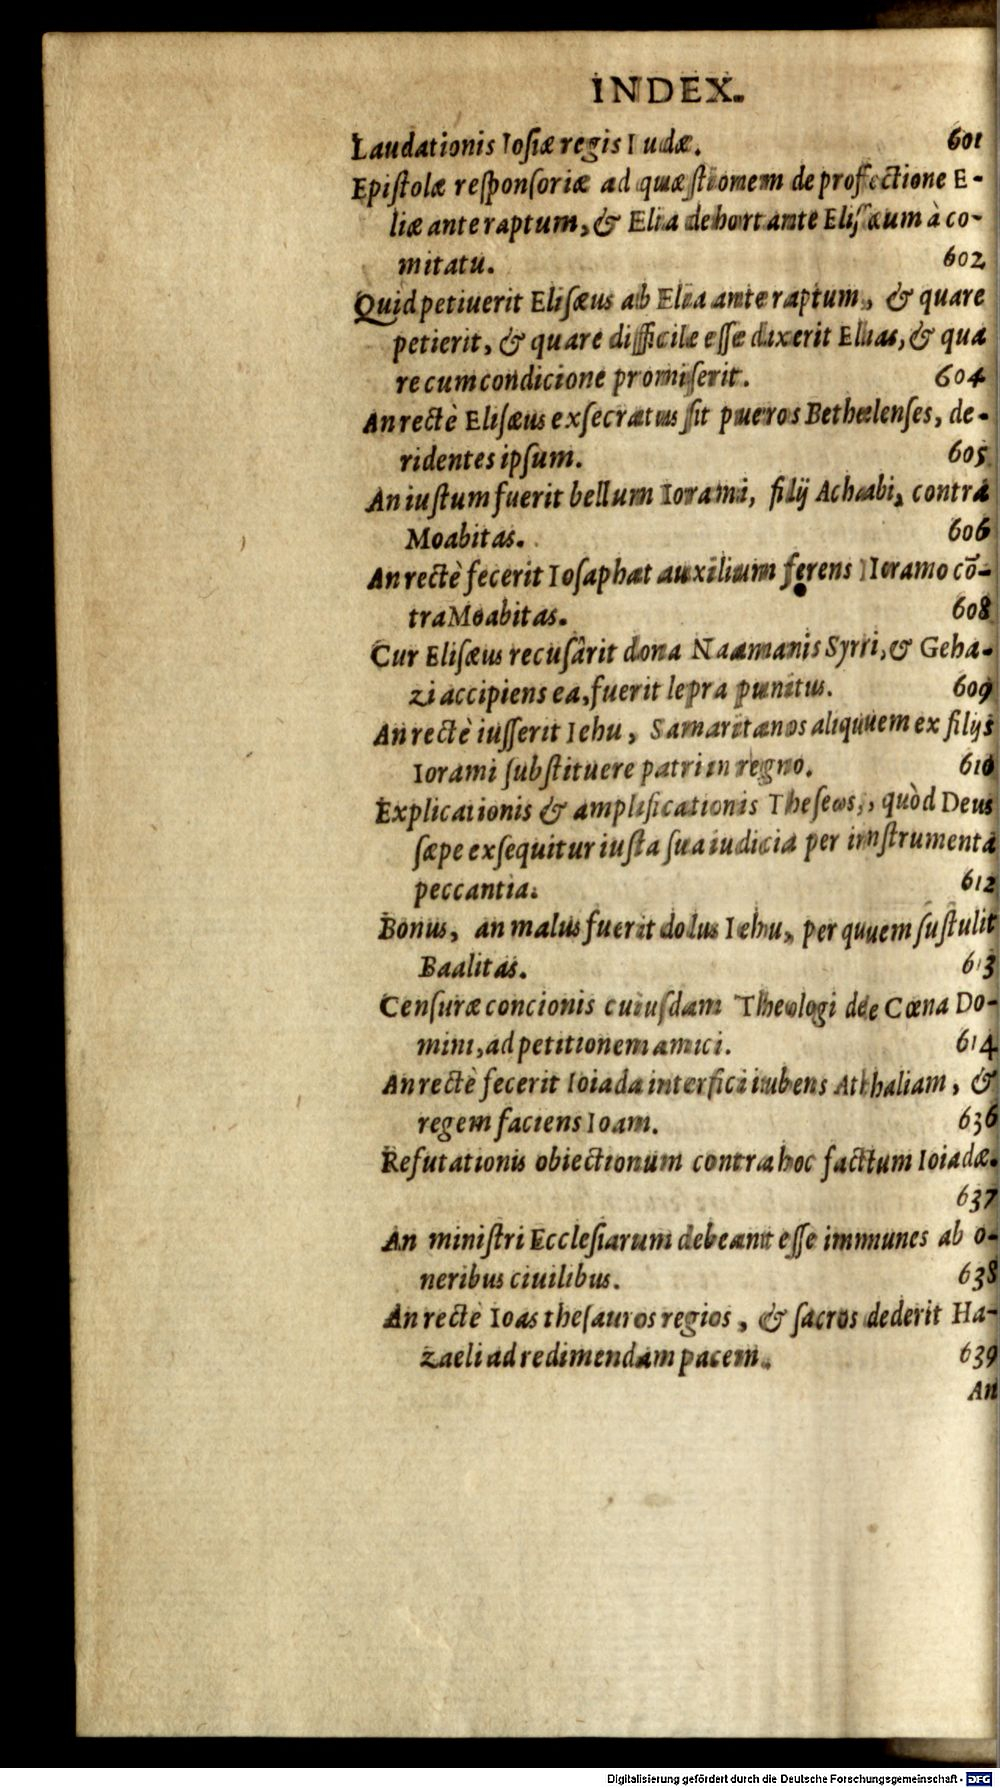 INDEX.
Laudationis Iosiæ regis Iudæ. 601
Epistolæ responsoriæ ad quæstionem de profectione E-
liæ ante raptum, & Elia dehortante Elisæum à co-
mitatu. 602
Quid petiuerit Elisæus ab Elia ante raptum, & quare
petierit, & quare difficile esse dixerit Elias, & qua
re cum condicione promiserit. 604
An rectè Elisæus exsecratus sit pueros Bethelenses, de-
ridentes ipsum. 605
An iustum fuerit bellum Iorami, filij Achabi, contra
Moabitas. 606
An rectè fecerit Iosaphat auxilium ferens Ioramo cō-
tra Moabitas. 608
Cur Elisæus recusârit dona Naamanis Syrri, & Geha-
zi accipiens ea, fuerit lepra punitus. 609
An rectè iusserit Iehu, Samaritanos aliquem ex filijs
Iorami substituere patri in regno. 610
Explicationis & amplificationis Theseos, quòd Deus
sæpe exsequitur iusta sua iudicia per instrumenta
peccantia. 612
Bonus, an malus fuerit dolus Iehu, per quem sustulit
Baalitas. 613
Censuræ concionis cuiusdam Theologi de Cœna Do-
mini, ad petitionem amici. 614
An rectè fecerit Ioiada interfici iubens Athaliam, &
regem faciens Ioam. 636
Refutationis obiectionum contra hoc factum Ioiadæ.
637
An ministri Ecclesiarum debeant esse immunes ab o-
neribus ciuilibus. 638
An rectè Ioas thesauros regios, & sacros dederit Ha-
zaeli ad redimendam pacem. 639
An
Digitalisierung gefördert durch die Deutsche Forschungsgemeinschaft - DFG